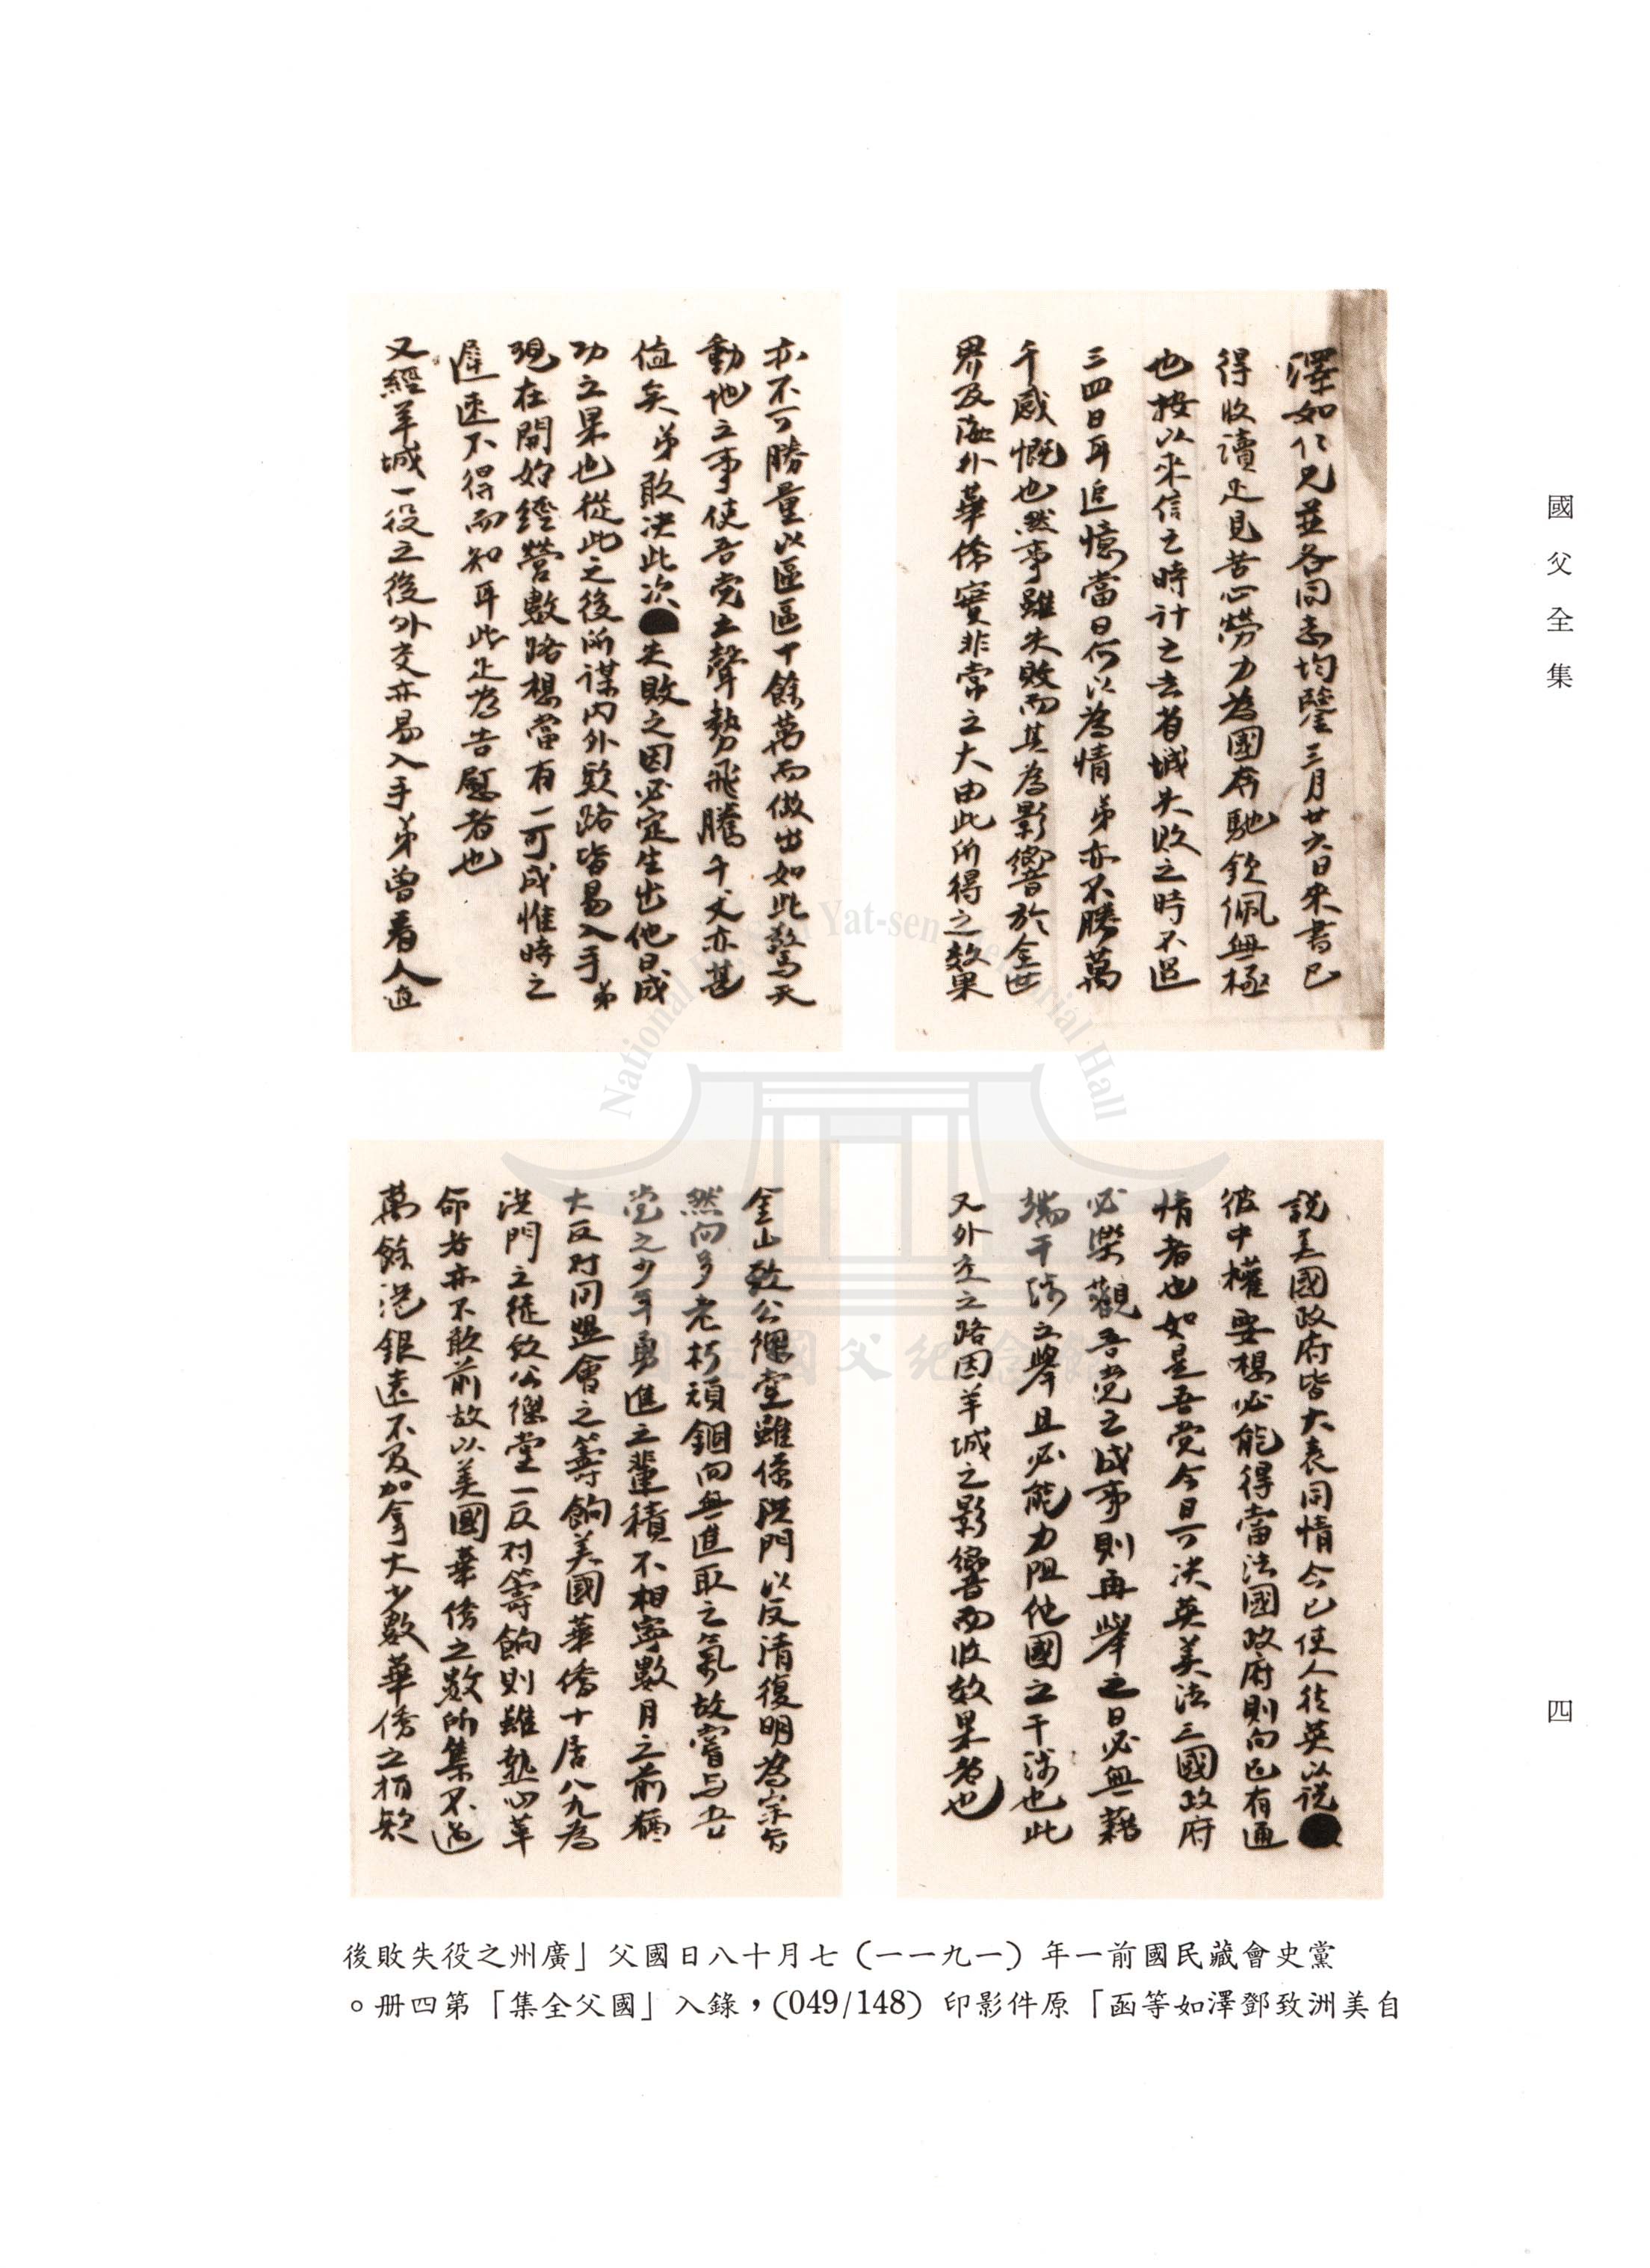 國父全集
四
澤如仁兄並各同志均鑒三月廿六日來書已
得收讀足見苦心勞力為國奔馳欽佩無極
也按以來信之時計之去省城失敗之時不過
三四日耳追憶當日何以為情弟亦不勝萬
千感慨也然事雖失敗而其為影響於全世
界及海外華僑實非常之大由此所得之效果
亦不可勝量以區區十餘萬而做出如此驚天
動地之事使吾党之聲勢飛騰千丈亦甚
值矣弟敢决此次失敗之因必定生出他日成
功之果也從此之後所謀內外欵路皆易入手弟
現在開始經營數路想當有一可成惟時之
遲速不得而知耳此足為告慰者也
又經羊城一役之後外交亦易入手弟曾着人直
說美國政府皆大表同情今已使人往英以說
彼中權要想必能得當法國政府則向已有通
情者也如是吾党今日可决英美法三國政府
必樂觀吾党之成事則再舉之日必無藉
端干涉之舉且必能力阻他國之干涉也此
又外交之路因羊城之影響而收效果者也
金山致公總堂雖係洪門以反清復明為宗旨
然向多老朽頑錮向無進取之氣故嘗与吾
党之少年勇進之輩積不相寧數月之前猶
大反对同盟會之籌餉美國華僑十居八九為
洪門之徒致公總堂一反对籌餉則雖熱心革
命者亦不敢前故以美國華僑之數所集不過
萬餘港銀遠不及加拿大少數華僑之捐欵
後敗失役之州廣」父國日八十月七（一一九一）年一前國民藏會史黨
。册四第「集全父國」入錄，(049/148) 印影件原「函等如澤鄧致洲美自
National Dr. Sun Yat-sen Memorial Hall
國立國父紀念館